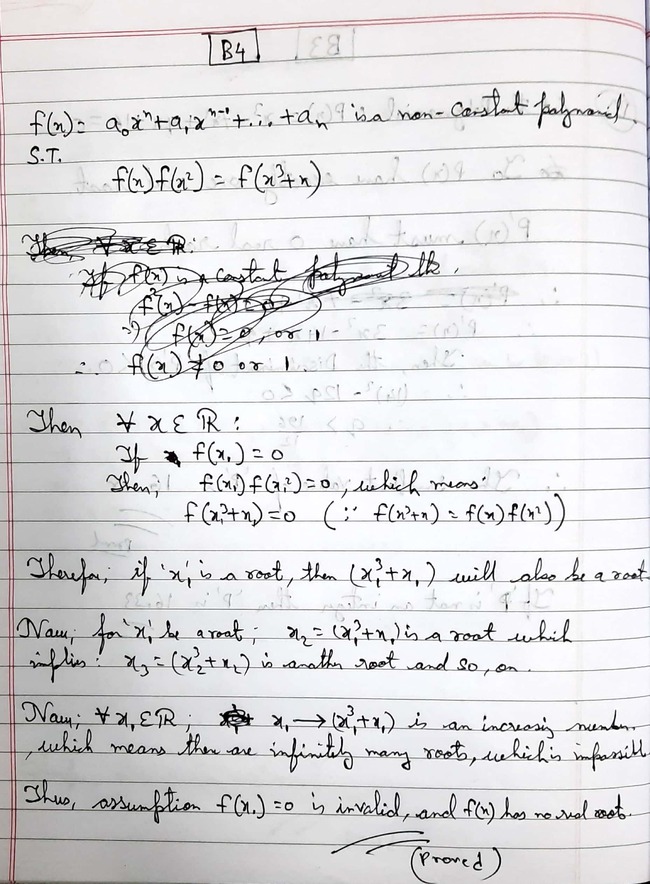 B4
f(x) = a₀xⁿ + a₁xⁿ⁻¹ + ... + aₙ is a non-constant polynomial
S.T.
f(x) f(x²) = f(x³+x)
Then ∀ x ∈ ℝ:
If f(x) is a constant polynomial
f²(x) - f(x) = 0
f(x) = 0, or 1
∴ f(x) ≠ 0 or 1.
Then ∀ x ∈ ℝ :
If f(x₁) = 0
Then, f(x₁) f(x₁²) = 0, which means:
f(x₁³+x₁) = 0 (∵ f(x³+x) = f(x) f(x²))
Therefore, if 'x₁' is a root, then (x₁³+x₁) will also be a root.
Now, for 'x₁' be a root; x₂ = (x₁³+x₁) is a root which
implies: x₃ = (x₂³+x₂) is another root and so, on.
Now, ∀ x₁ ∈ ℝ; x₁ → (x₁³+x₁) is an increasing number
, which means there are infinitely many roots, which is impossible
Thus, assumption f(x₁) = 0 is invalid, and f(x) has no real roots.
(Proved)